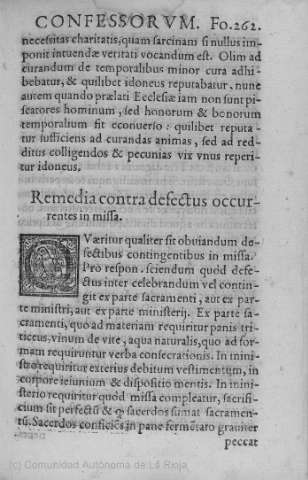 CONFESSORVM. Fo.262.
necessitas charitatis, quam sarcinam si nullus im-
ponit intuendæ veritati vocandum est. Olim ad
curandum de temporalibus minor cura adhi-
bebatur, & quilibet idoneus reputabatur, nunc
autem quando prælati Ecclesiæ iam non sunt pis-
catores hominum, sed honorum & bonorum
temporalium fit econuerso: quilibet reputa-
tur sufficiens ad curandas animas, sed ad red-
ditus colligendos & pecunias vix vnus reperi-
tur idoneus.
Remedia contra defectus occur-
rentes in missa.
QVæritur qualiter sit obuiandum de-
fectibus contingentibus in missa.
Pro respon. sciendum quòd defe-
ctus inter celebrandum vel contin-
git ex parte sacramenti, aut ex par-
te ministri, aut ex parte ministerij. Ex parte sa-
cramenti, quo ad materiam requiritur panis tri-
ticeus, vinum de vite, aqua naturalis, quo ad for-
mam requiruntur verba consecrationis. In mini-
stro requiritur exterius debitum vestimentum, in
corpore ieiunium & dispositio mentis. In mini-
sterio requiritur quòd missa compleatur, sacrifi-
cium sit perfectũ & ꝙ sacerdos sumat sacramen-
tũ. Sacerdos conficiẽs in pane fermẽtato grauiter
peccat
(c) Comunidad Autónoma de La Rioja